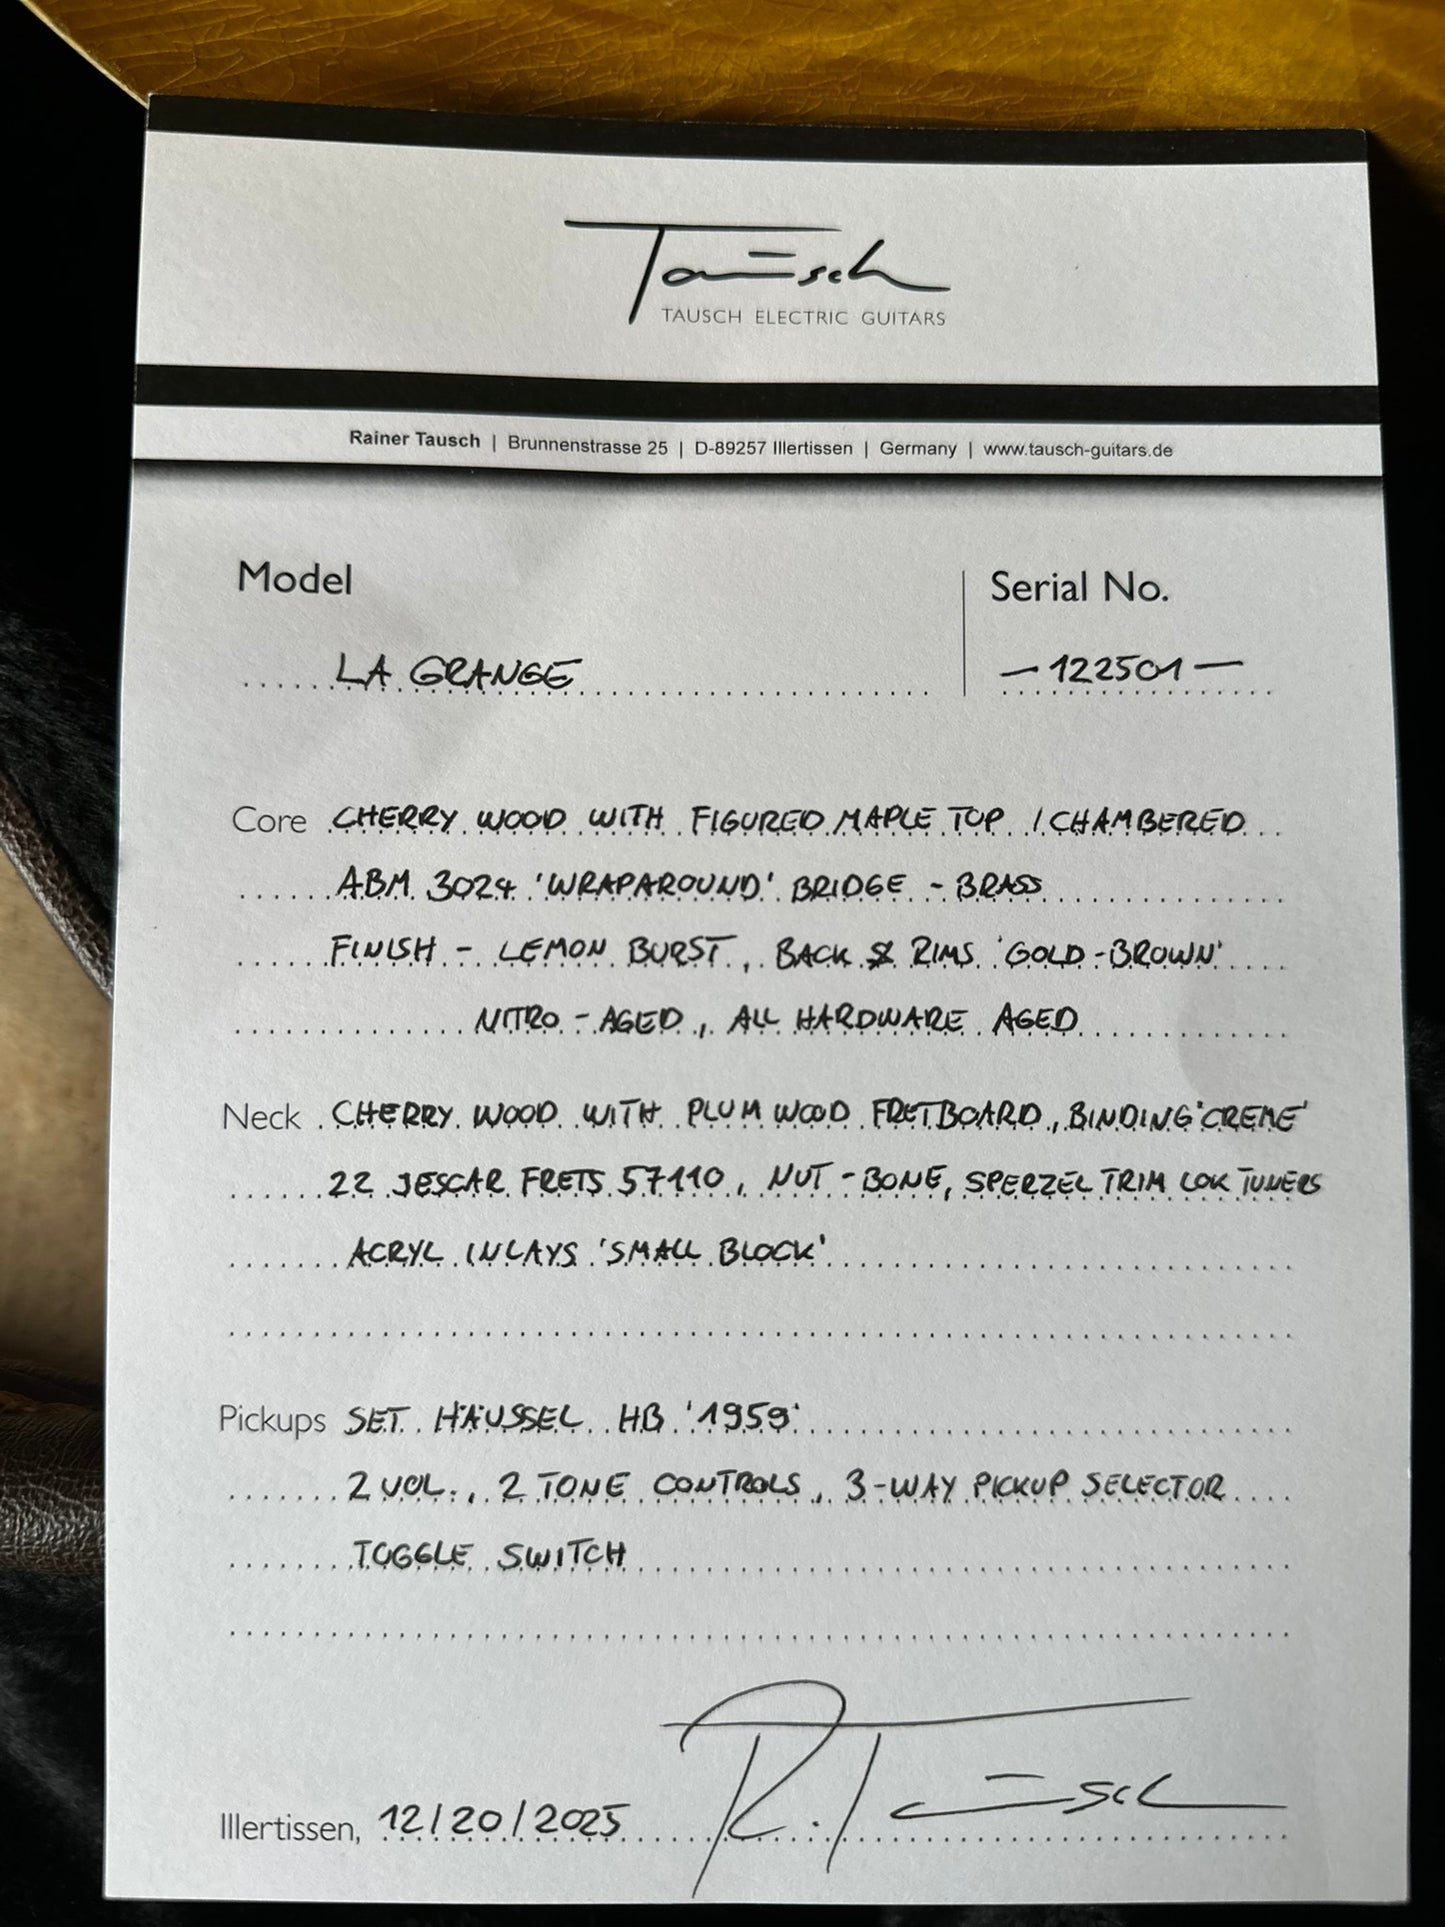 Tausch
TAUSCH ELECTRIC GUITARS
Rainer Tausch | Brunnenstrasse 25 | D-89257 Illertissen | Germany | www.tausch-guitars.de
Model
Serial No.
LA GRANGE
— 122501 —
Core CHERRY WOOD WITH FIGURED MAPLE TOP / CHAMBERED
ABM 3024 'WRAPAROUND' BRIDGE - BRASS
FINISH - LEMON BURST, BACK & RIMS 'GOLD-BROWN'
NITRO - AGED, ALL HARDWARE AGED
Neck CHERRY WOOD WITH PLUM WOOD FRETBOARD, BINDING 'CREME'
22 JESCAR FRETS 57110, NUT - BONE, SPERZEL TRIM LOK TUNERS
ACRYL INLAYS 'SMALL BLOCK'
Pickups SET HÄUSSEL HB '1959'
2 VOL., 2 TONE CONTROLS, 3-WAY PICKUP SELECTOR
TOGGLE SWITCH
Illertissen, 12/20/2025 R. Tausch